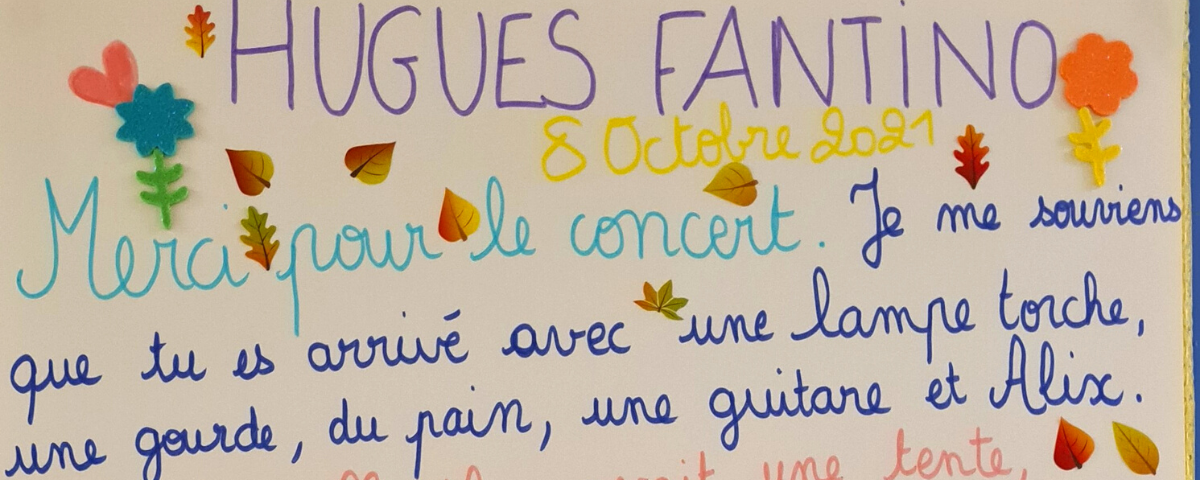 HUGUES FANTINO
8 Octobre 2021
Merci pour le concert. Je me souviens
que tu es arrivé avec une lampe torche,
une gourde, du pain, une guitare et Alix.
une tente,